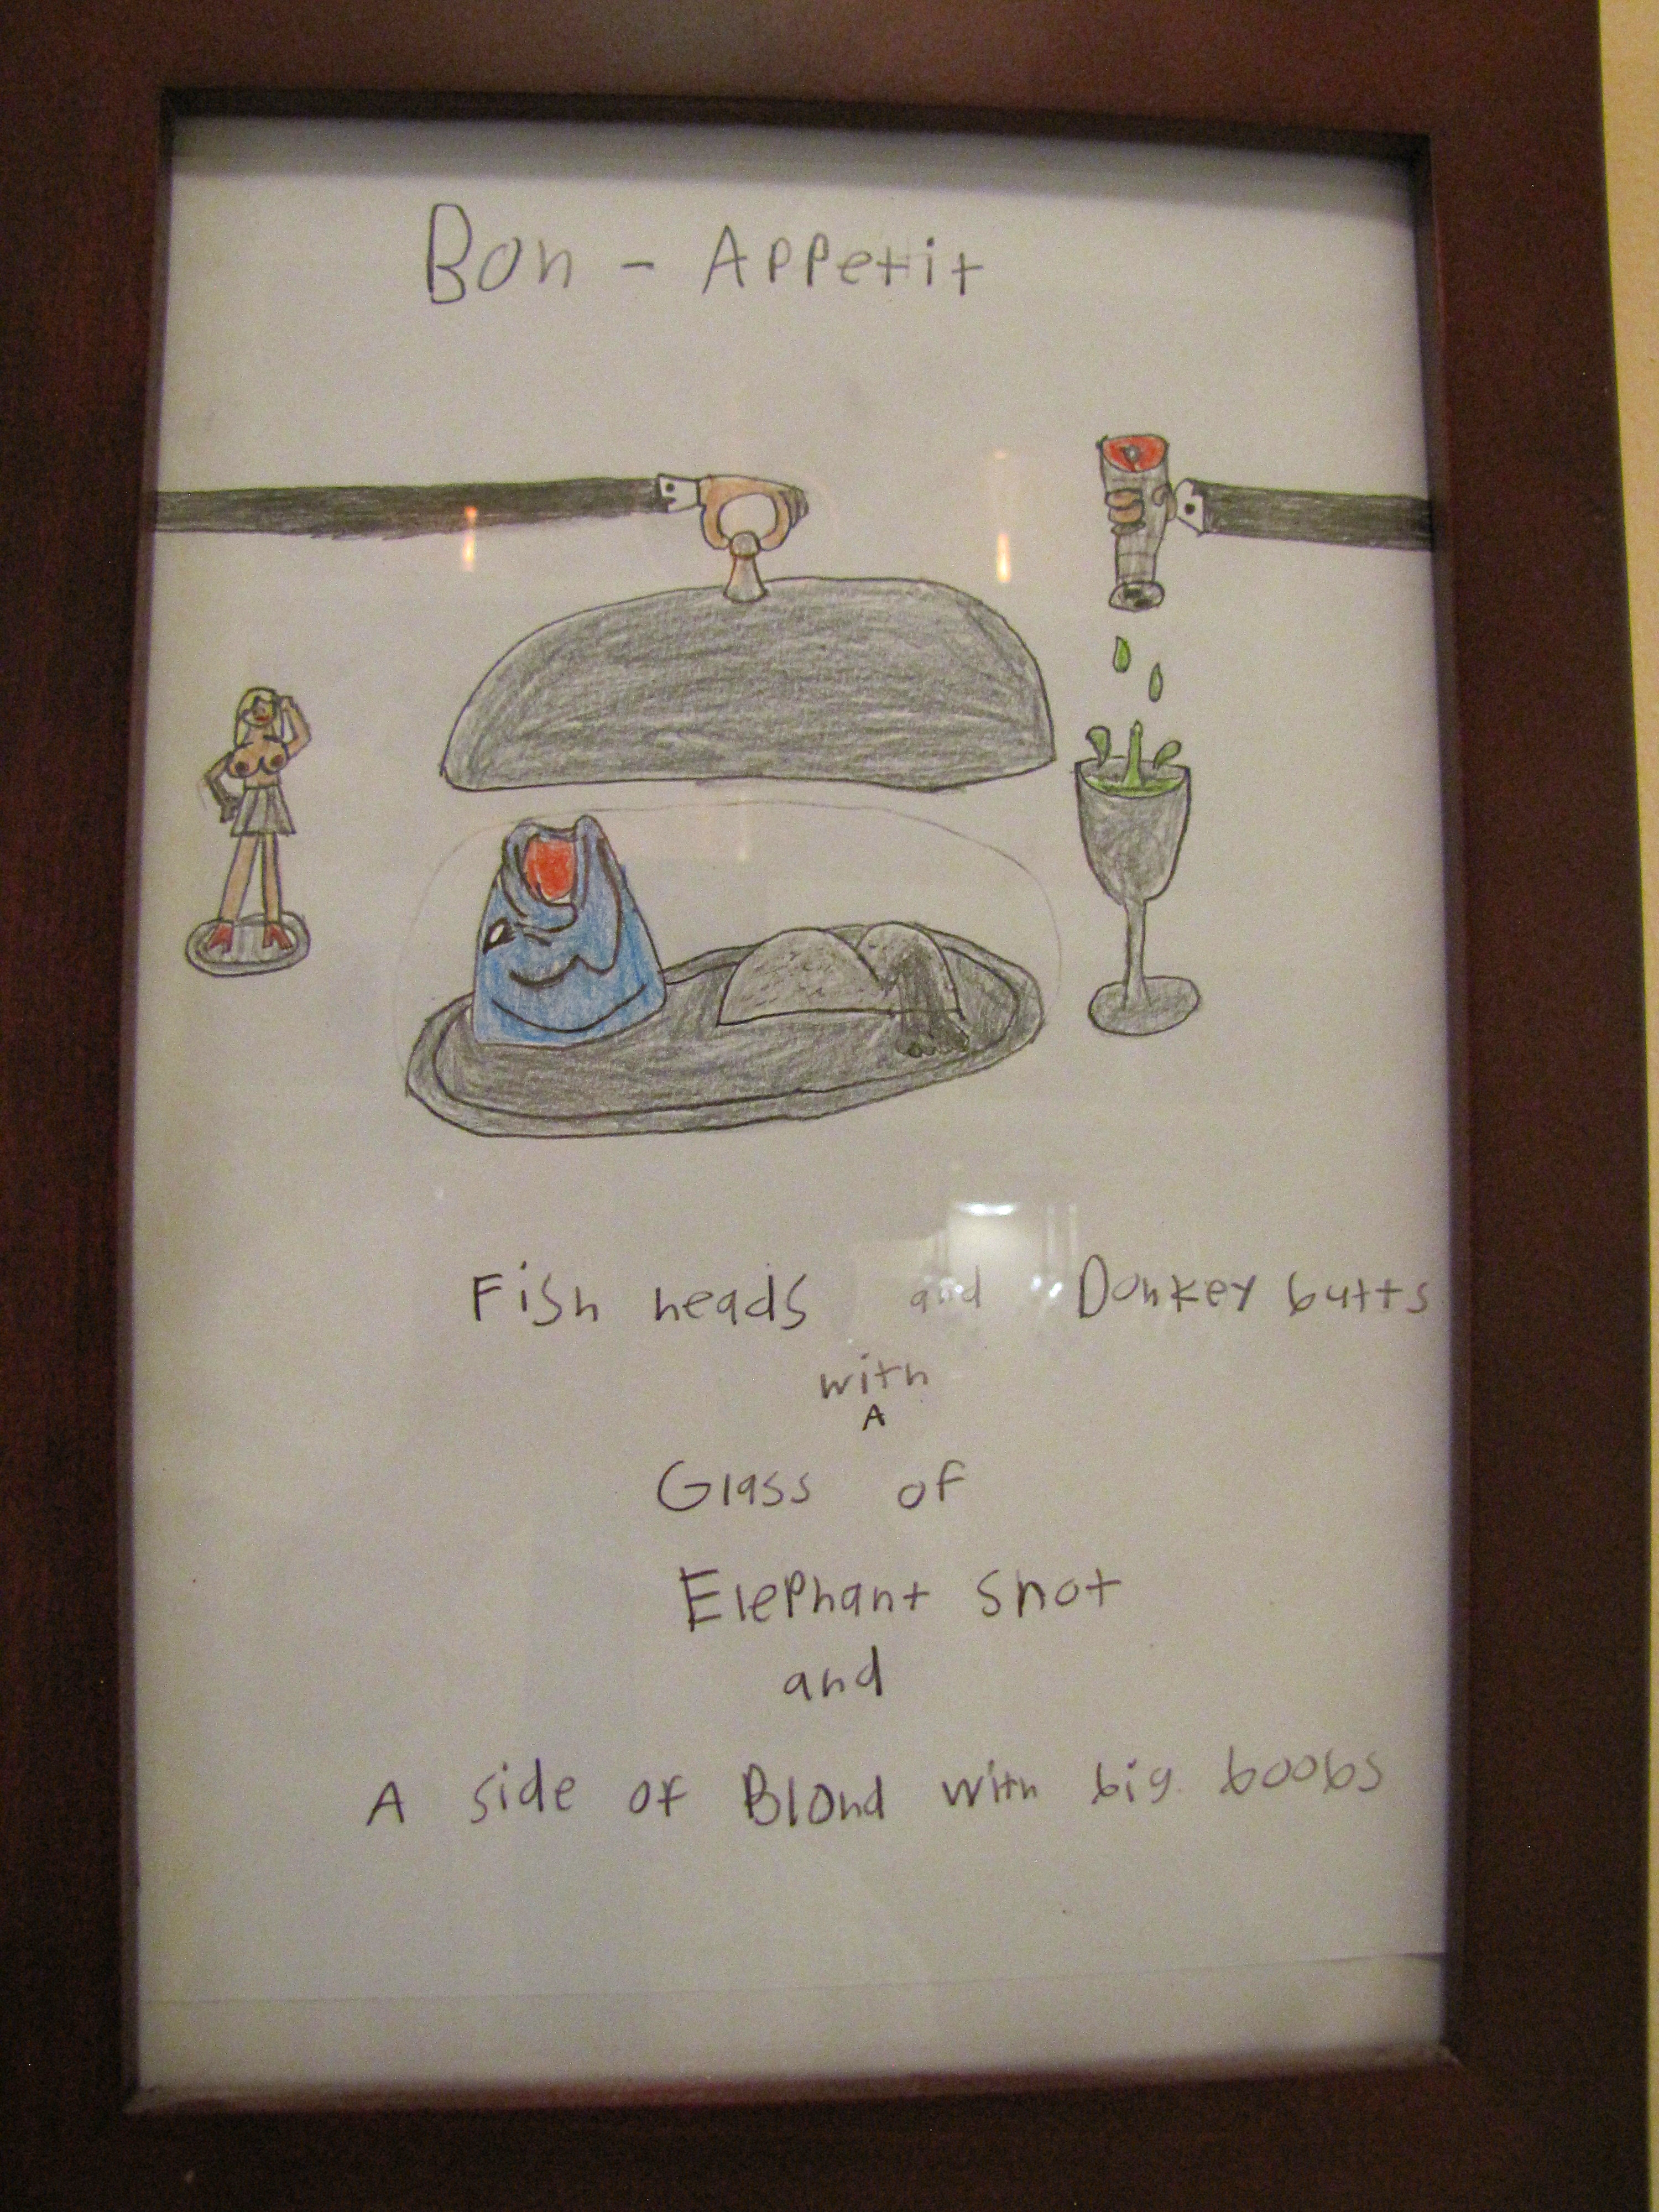 Bon - Appetit
Fish heads and Donkey butts
with
A
Glass of
Elephant snot
and
A side of Blond with big boobs